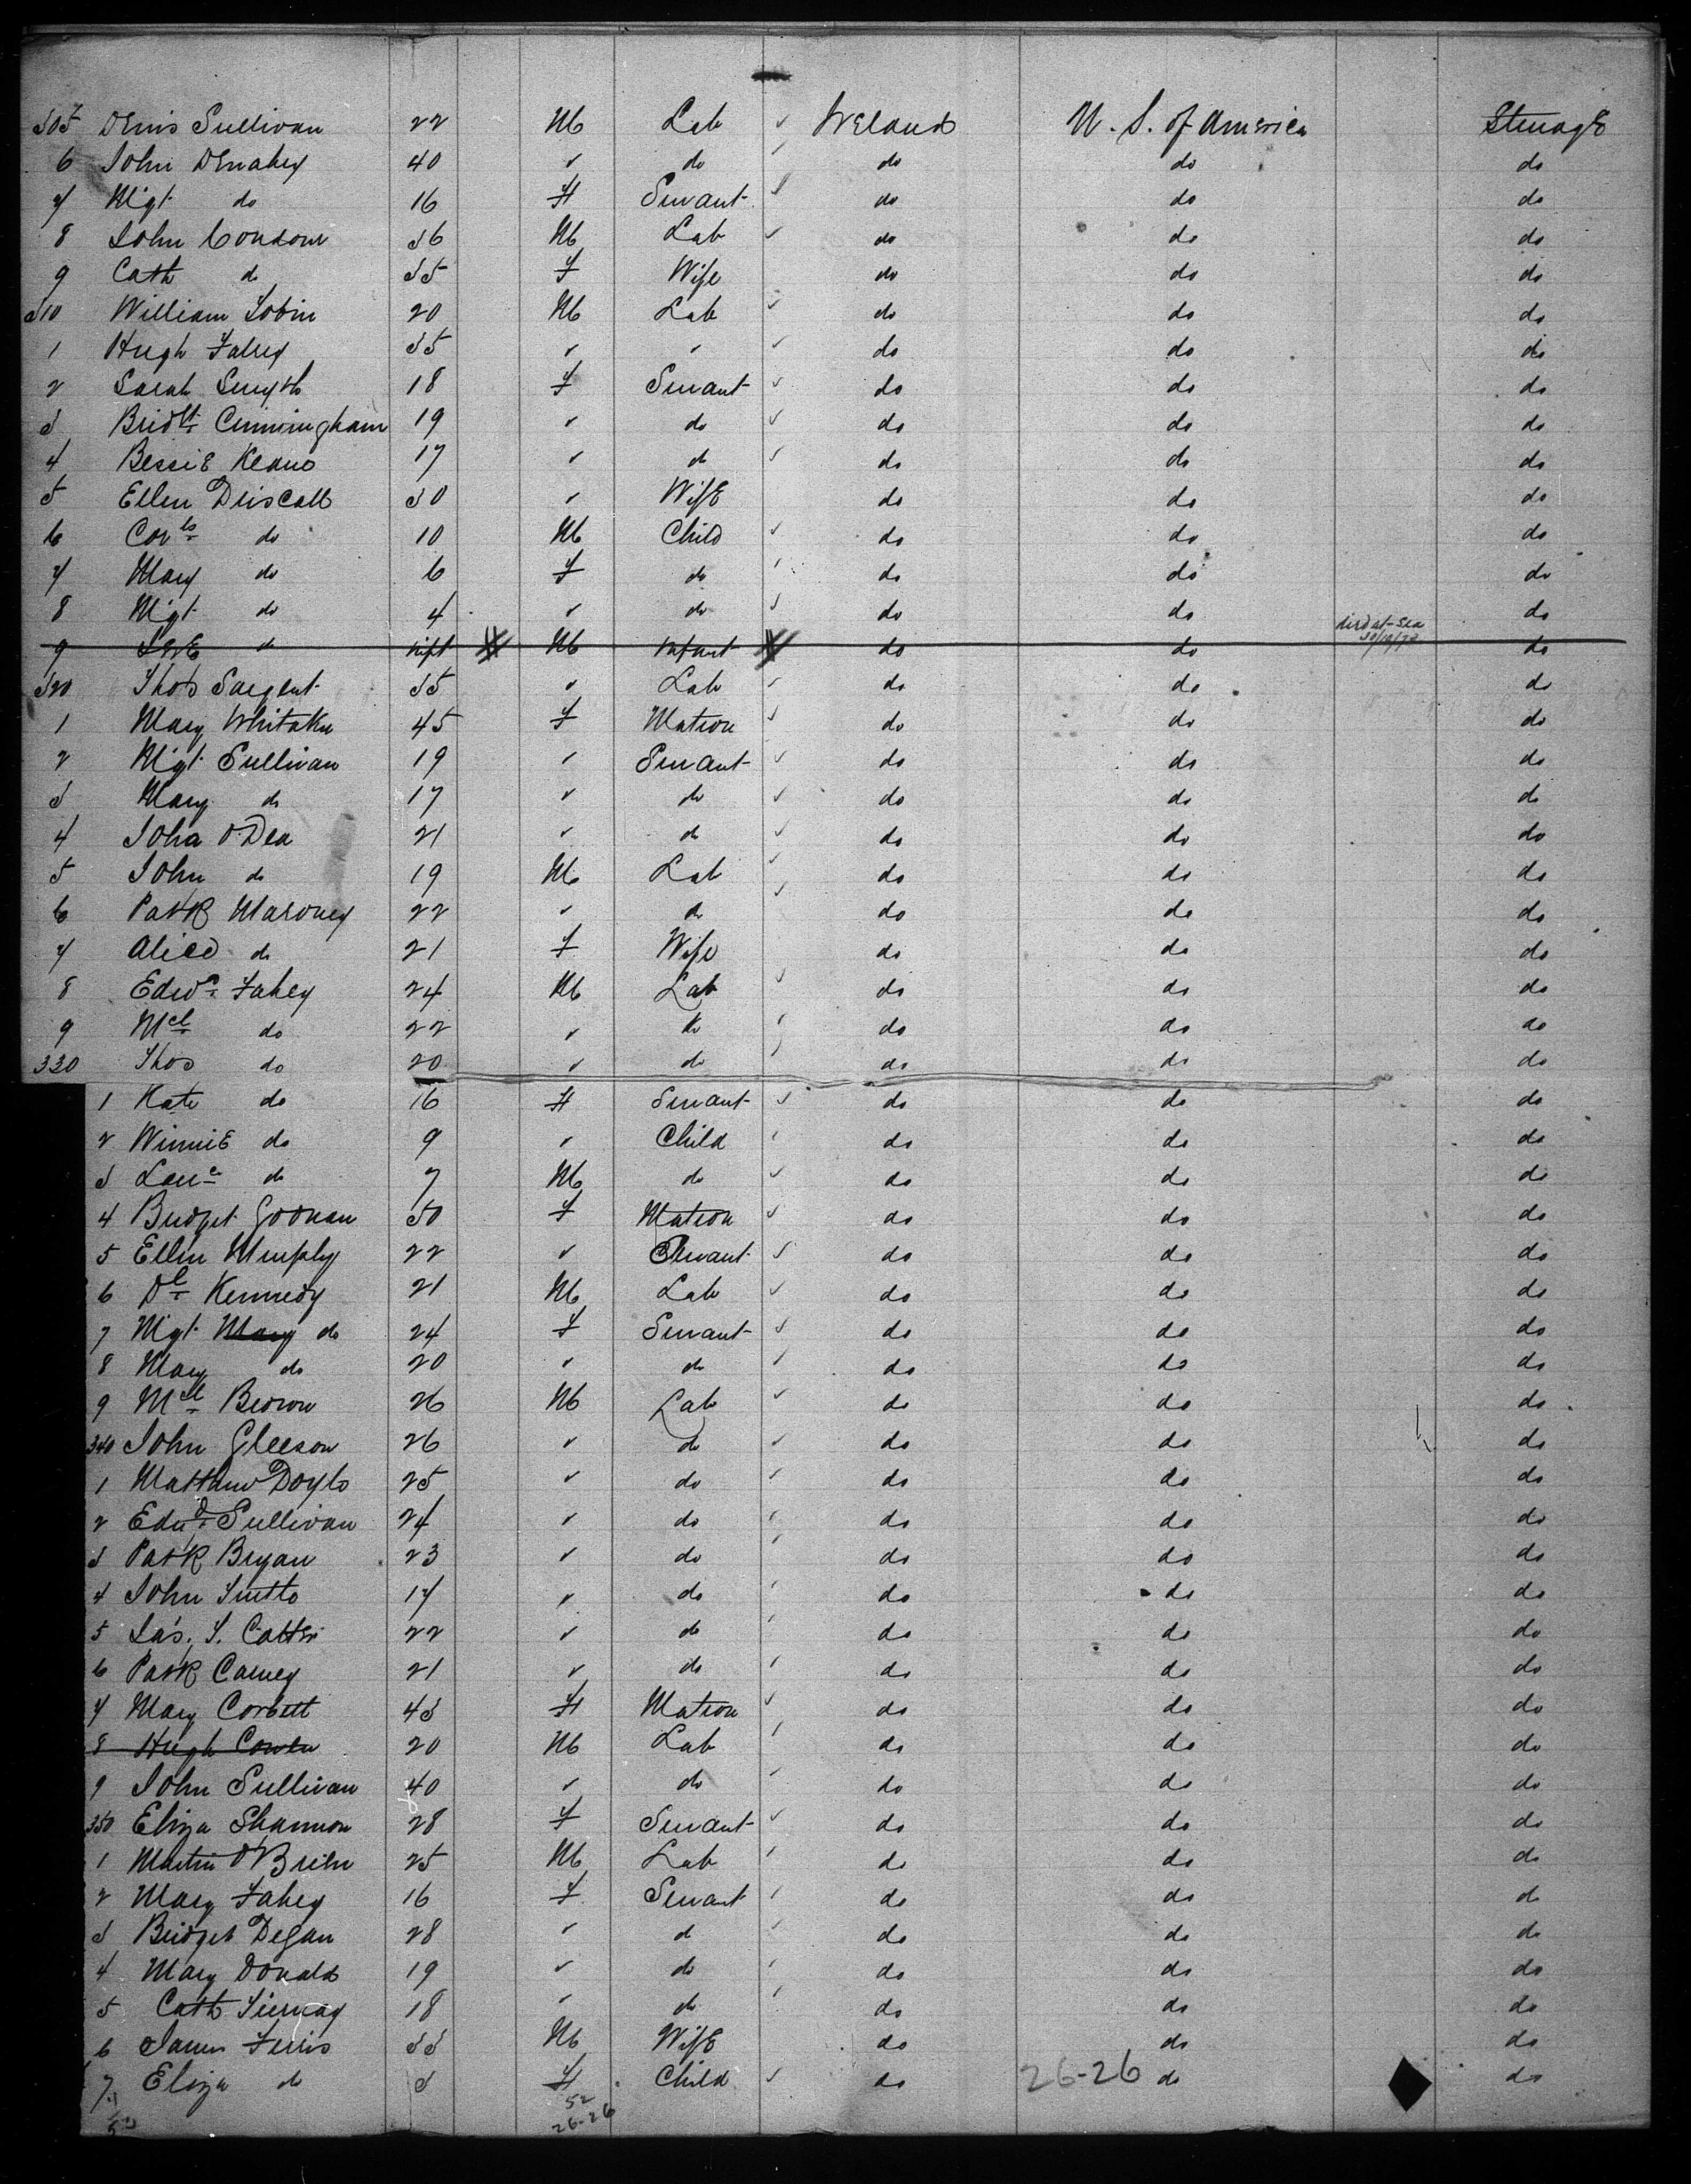 305 Denis Sullivan 22 M Lab Ireland U. S. of America Steerage
6 John Denahey 40 " do do do do
7 Mgt do 16 F Servant do do do
8 John Condon 36 M Lab do do do
9 Cath do 35 F Wife do do do
310 William Tobin 20 M Lab do do do
1 Hugh Fahey 35 " " do do do
2 Sarah Smyth 18 F Servant do do do
3 Bridgt Cunningham 19 " do do do do
4 Bessie Keane 17 " do do do do
5 Ellen Driscoll 30 " Wife do do do
6 Corls do 10 M Child do do do
7 Mary do 6 F do do do do
8 Mgt do 4 " do do do do
9 do inft M Infant do do died at Sea do
320 Thos Sargent 35 " Lab do do do
1 Mary Whitaker 45 F Matron do do do
2 Mgt Sullivan 19 " Servant do do do
3 Mary do 17 " do do do do
4 Joha O'Dea 21 " do do do do
5 John do 19 M Lab do do do
6 Patk Maroney 22 " do do do do
7 Alice do 21 F Wife do do do
8 Edwd Fahey 24 M Lab do do do
9 Mcl do 22 " do do do do
330 Thos do 20 " do do do do
1 Kate do 16 F Servant do do do
2 Winnie do 9 " Child do do do
3 Laue do 7 M do do do do
4 Bridget Goonan 50 F Matron do do do
5 Ellen Murphy 22 " Servant do do do
6 Dl Kennedy 21 M Lab do do do
7 Mgt Mary do 24 F Servant do do do
8 Mary do 20 " do do do do
9 Mcl Brown 26 M Lab do do do
340 John Gleeson 26 " do do do do
1 Matthew Doyle 25 " do do do do
2 Edwd Sullivan 24 " do do do do
3 Patk Bryan 23 " do do do do
4 John 17 " do do do do
5 Jas. T. Cotter 22 " do do do do
6 Patk Carney 21 " do do do do
7 Mary Corbett 43 F Matron do do do
8 Hugh Cowen 20 M Lab do do do
9 John Sullivan 40 " do do do do
350 Eliza Shannon 28 F Servant do do do
1 Martin O'Brien 25 M Lab do do do
2 Mary Fahey 16 F Servant do do do
3 Bridget Degan 28 " do do do do
4 Mary Donald 19 " do do do do
5 Cath Tiernay 18 " do do do do
6 James Ferris 33 M Wife do do do
7 Eliza do 3 F Child do 26-26 do do
52
26-26